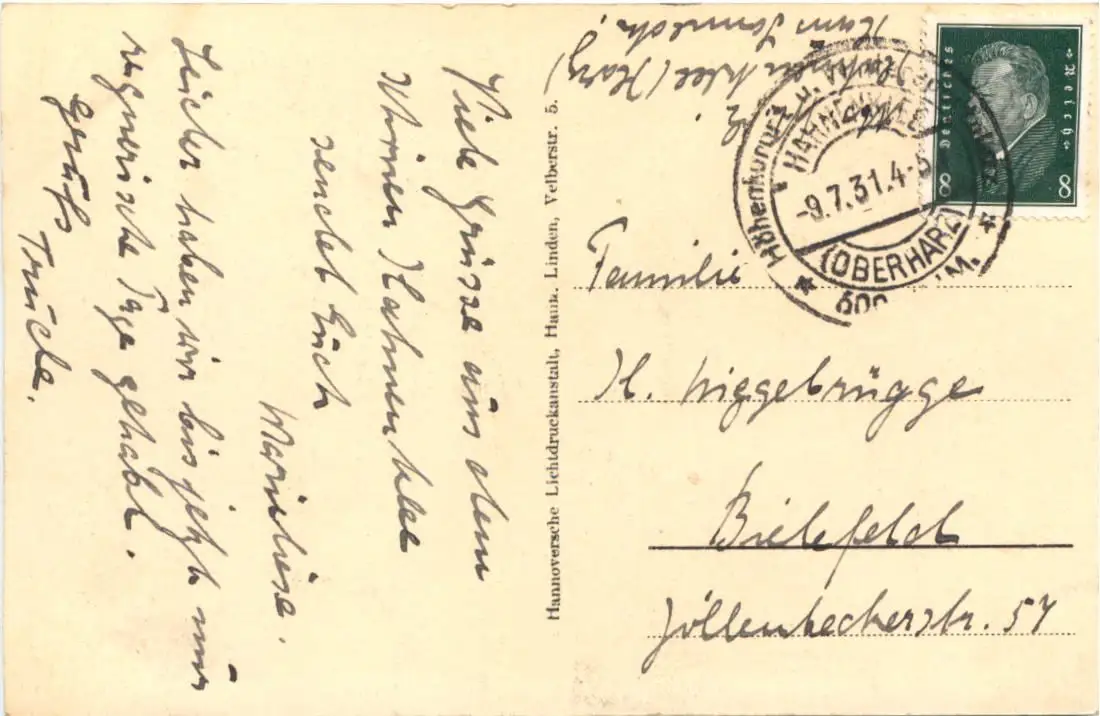 Viele Grüsse aus dem
schönen Hahnenklee
sendet Euch
Marieliese.
Leider haben wir bis jetzt nur
regnerische Tage gehabt.
Gruß
Trude.
Hannoversche Lichtdruckanstalt, Hann. Linden, Velberstr. 5.
Hahnenklee (Harz)
Deutsches Reich
8 8
HAHNENKLEE
-9.7.31.4-5
(OBERHARZ)
Höhenkurort
600 M.
Familie
H. Niggebrügge
Bielefeld
Jöllenbeckerstr. 57